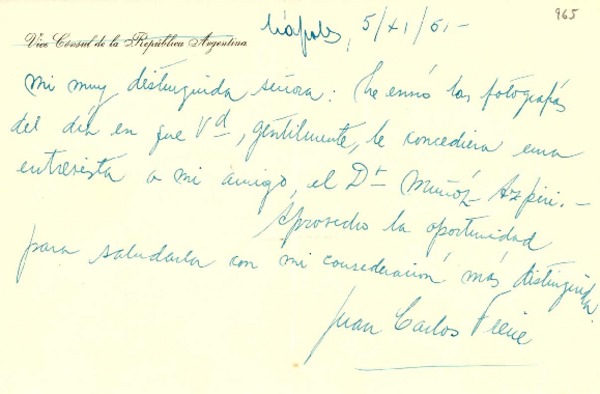 965
Nápoles, 5/XI/61.-
Vice Consul de la República Argentina
Mi muy distinguida señora: Le envío las fotografías
del día en que Vd, gentilmente, le concediera una
entrevista a mi amigo, el Dr Muñoz Azpiri.-
Aprovecho la oportunidad
para saludarla con mi consideración más distinguida
Juan Carlos